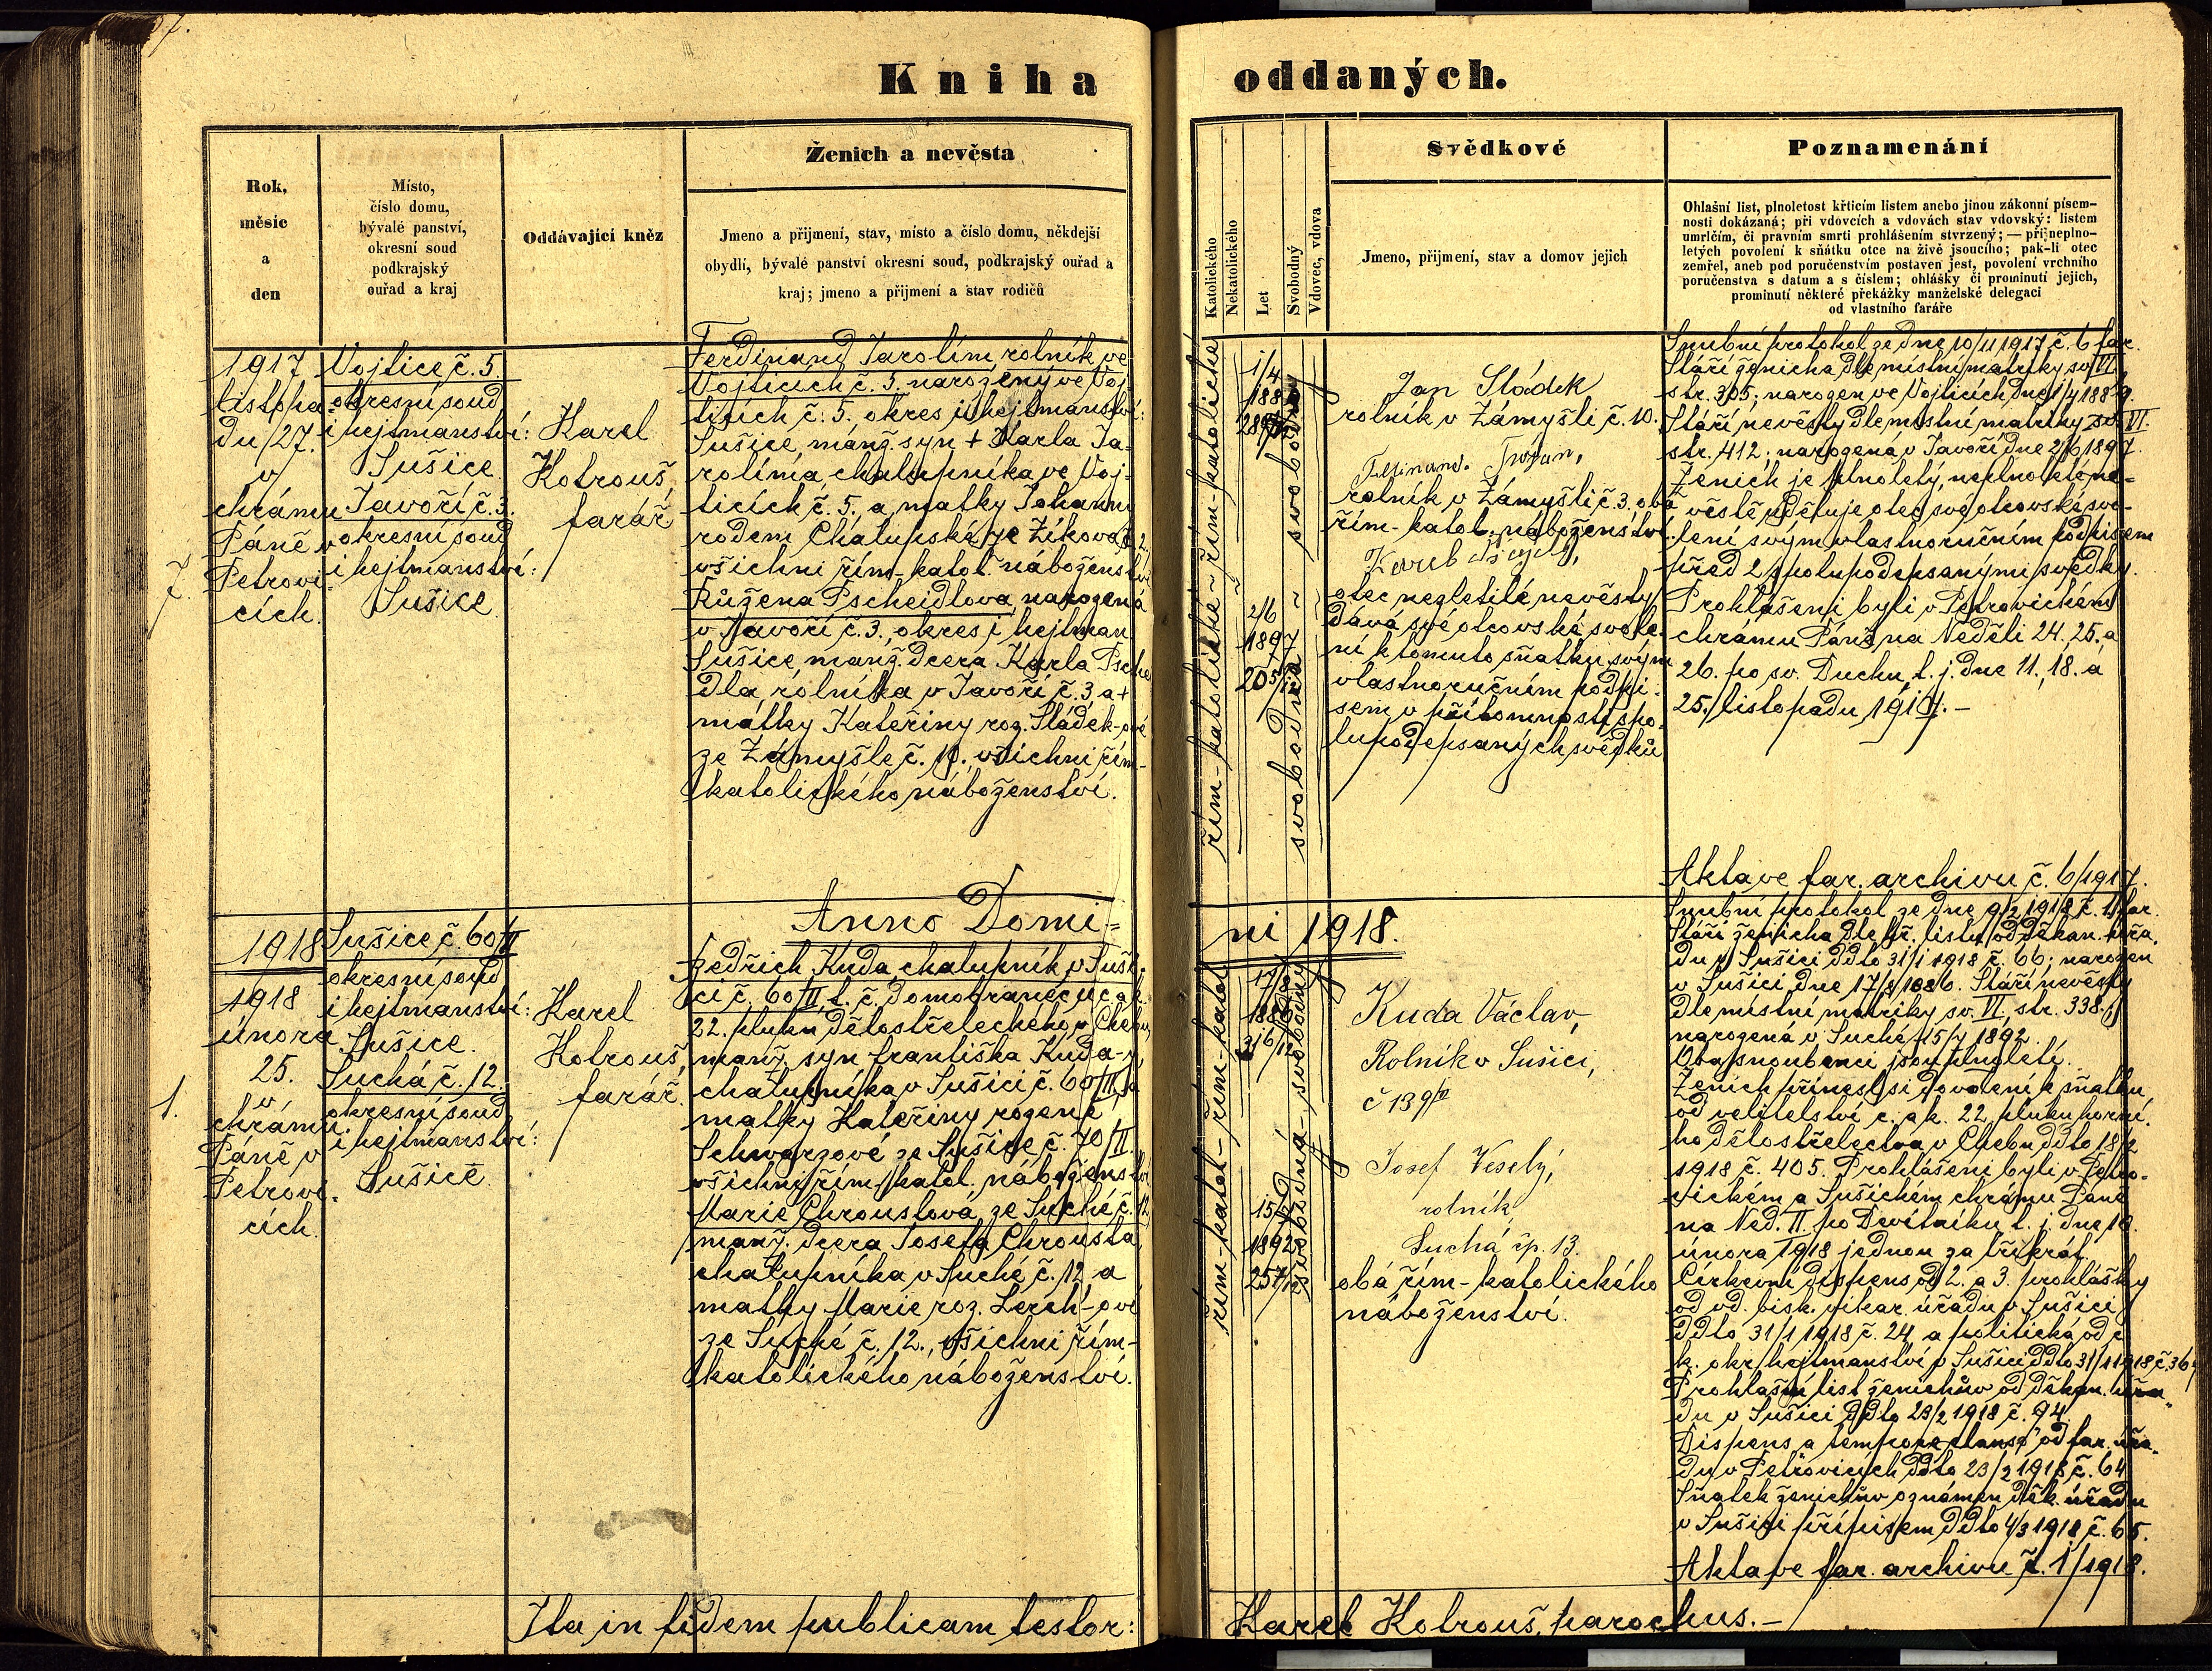 Kniha oddaných.
Rok,
měsíc
a
den
Místo,
číslo domu,
bývalé panství,
okresní soud
podkrajský
ouřad a kraj
Oddávající kněz
Ženich a nevěsta
Jmeno a přijmení, stav, místo a číslo domu, někdejší
obydlí, bývalé panství okresní soud, podkrajský ouřad a
kraj; jmeno a přijmení a stav rodičů
Katolického
Nekatolického
Let
Svobodný
Vdovec, vdova
Svědkové
Jmeno, přijmení, stav a domov jejich
Poznamenání
Ohlašní list, plnoletost křticím listem anebo jinou zákonní písem-
nosti dokázaná; při vdovcích a vdovách stav vdovský: listem
umrlčím, či právním smrti prohlášením stvrzený; — při neplno-
letých povolení k sňátku otce na živě jsoucího; pak-li otec
zemřel, aneb pod poručenstvím postaven jest, povolení vrchního
poručenstva s datum a s číslem; ohlášky či prominutí jejich,
prominutí některé překážky manželské delegací
od vlastního faráře
7.
1917
listopa-
du 27.
v
chrámu
Páně v
Petrovi-
cích.
Vojtice č. 5.
okresní soud
i hejtmanství:
Sušice.
Javoří č. 3.
okresní soud
i hejtmanství:
Sušice
Karel
Kotrouš,
farář
Ferdinand Jarolím rolník ve
Vojticích č. 5. narozený ve Voj-
ticích č. 5. okres i hejtmanství:
Sušice, manž. syn + Karla Ja-
rolíma, chalupníka ve Voj-
ticích č. 5. a matky Johanny
rodem Chalupská ze Žíkova č. 2.
všichni řím.-katol. náboženství
Růžena Pscheidlova, narozená
v Javoří č. 3., okres i hejtman.
Sušice, manž. dcera Karla Pschei-
dla, rolníka v Javoří č. 3 a +
matky Kateřiny roz. Sládek-ové
ze Zámyšle č. 10. všichni řím-
katolického náboženství.
řím-katolické ~ řím-katolické
1/4
1889
2/6
1897
svobodný
svobodná
Jan Sládek
rolník v Zámyšli č. 10.
rolník v Zámyšli č. 3, obá
řím-katol. náboženství.
Karel
otec nezletilé nevěsty
dává své otcovské svole-
ní k tomuto sňatku svým
vlastnoručním podpi-
sem v přítomnosti spo-
lupodepsaných svědků
Snubní protokol ze dne 10/11 1917 č. 6 far.
Stáří ženicha dle místní matriky sv. VI
str. 305; narozen ve Vojticích dne 1/4 1889.
Stáří nevěsty dle místní matriky sv. VI.
str. 412; narozená v Javoří dne 2/6 1897.
Ženich je plnoletý, neplnoleté ne-
věstě uděluje otec své otcovské svo-
lení svým vlastnoručním podpisem
před 2 spolupodepsanými svědky.
Prohlášeni byli v Petrovickém
chrámu Páně na Neděli 24. 25. a
26. po sv. Duchu, t. j. dne 11., 18. a
25. listopadu 1917. —
Akta ve far. archivu č. 6/1917.
Anno Domi=
ni 1918.
1.
1918
1918
února
25.
v
chrámu
Páně v
Petrovi-
cích.
Sušice č. 60/II
okresní soud
i hejtmanství:
Sušice.
Suchá č. 12.
okresní soud
i hejtmanství:
Sušice.
Karel
Kotrouš,
farář.
Bedřich Kuda, chalupník v Suši-
ci č. 60/II, t. č. domobranec u c. a k.
22. pluku dělostřeleckého v Chebu,
manž. syn Františka Kuda-y,
chalupníka v Sušici č. 60/II, a
matky Kateřiny rozené
Schwarzové ze Sušice č. 70/II.
všichni řím. katol. náboženství
Marie Chroustová, ze Suché č. 12
manž. dcera Josefa Chrousta,
chalupníka v Suché č. 12, a
matky Marie roz. Lerch-ové
ze Suché č. 12., všichni řím-
katolického náboženství.
řím-katol- řím-katol
1886
1892
svobodná - svobodný
Kuda Václav,
Rolník v Sušici,
Josef Veselý,
rolník
Suchá čp. 13.
obá řím-katolického
náboženství.
Snubní protokol ze dne 9/2 1918 č. 1 far.
Stáří ženicha dle kř. listu od děkan. úřa-
du v Sušici ddto 31/1 1918 č. 66; narozen
v Sušici dne 17/8 1886. Stáří nevěsty
dle místní matriky sv. VI., str. 338;
narozená v Suché 15/7 1892.
Oba snoubenci jsou plnoletí.
Ženich přinesl si dovolení k sňatku
od velitelství c. a k. 22. pluku horní-
ho dělostřelectva v Chebu ddto 18/2
1918 č. 405. Prohlášeni byli v Petro-
vickém a Sušickém chrámu Páně
na Ned. II. po Devítníku t. j. dne 10.
února 1918 jednou za třikrát.
Církevní dispens od 2. a 3. prohlášky
od vd. bisk. vikar. úřadu v Sušici
ddto 31/1 1918 č. 24, a politická od c.
k. okr. hejtmanství v Sušici ddto 31/1 1918
Prohlašní list ženichův od děkan. úřa-
du v Sušici ddto 23/2 1918 č. 94.
Dispens a tempore clauso od far. úřa-
du v Petrovicích ddto 23/2 1918 č. 64
Sňatek ženichův oznámen děk. úřadu
v Sušici přípisem ddto 4/3 1918 č. 65.
Akta ve far. archivu č. 1/1918.
Ita in fidem publicam testor:
Karel Kotrouš, parochus. —